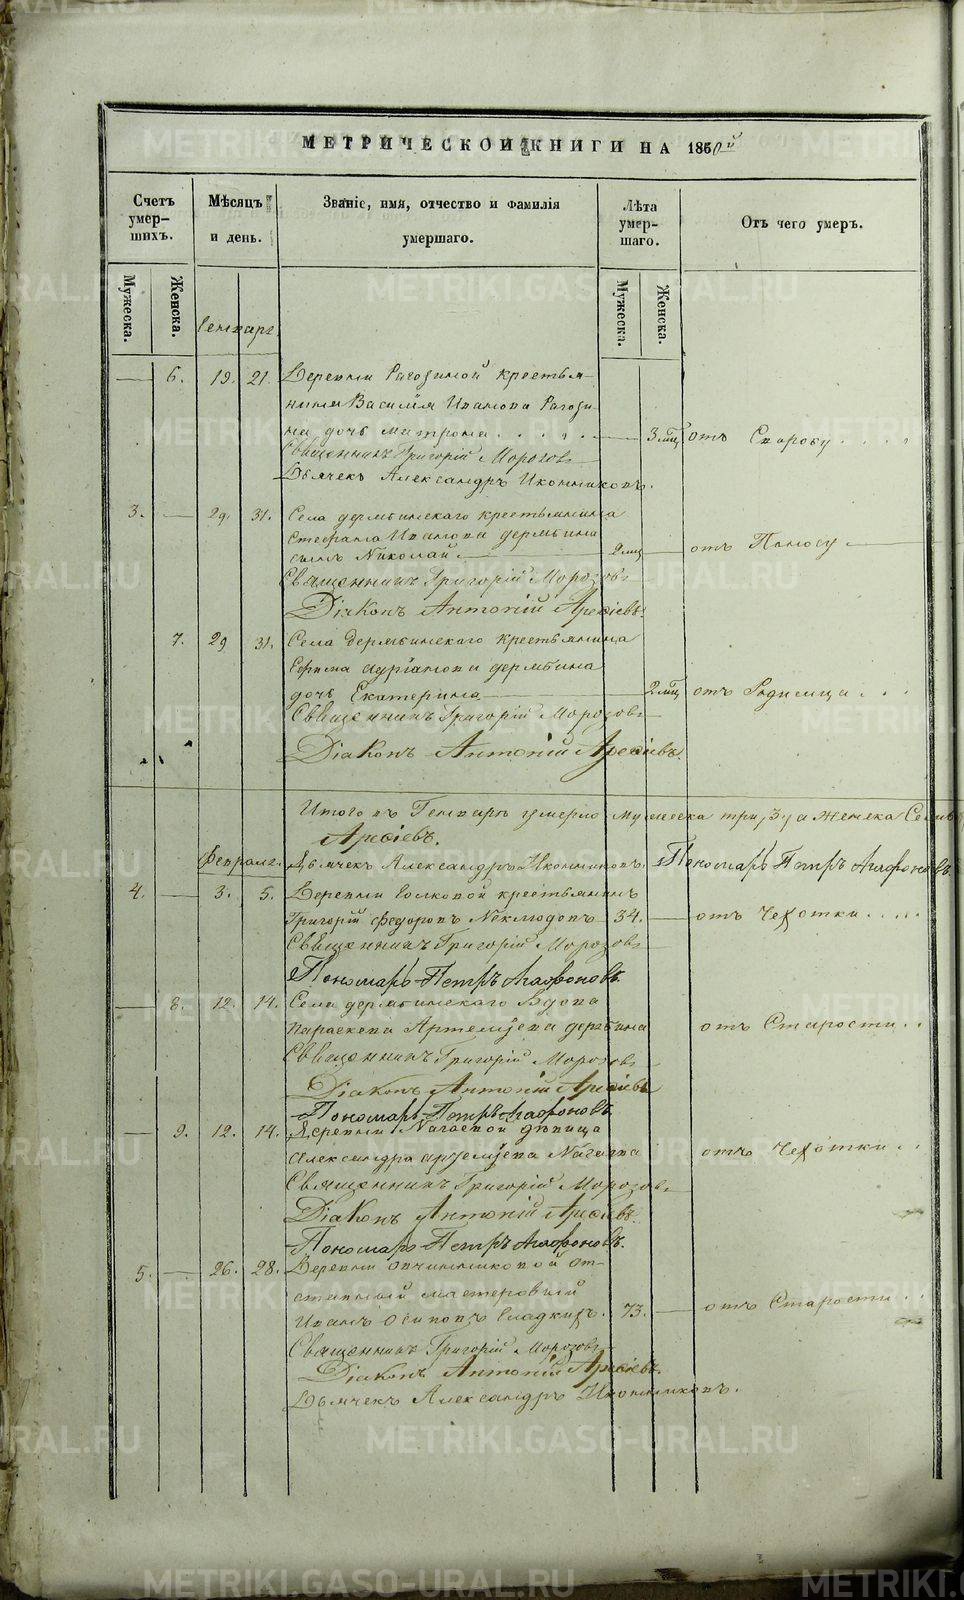 МЕТРИЧЕСКОЙ КНИГИ НА 1860й
Счетъ умер-шихъ.
Мѣсяцъ и день.
Званіе, имя, отчество и фамилія умершаго.
Лѣта умер-шаго.
Отъ чего умеръ.
Мужеска.
Женска.
Мужеска.
Женска.
Генварь.
6. 19. 21. Деревни Рагозиной крестья-
нина Василія Иванова Рагози-
на дочь Матрона . . . . 3 мѣц отъ Скорову . . . .
Священникъ Григорій Морозовъ
Дьячекъ Александръ Иконниковъ.
3. 29. 31. Села Дерябинскаго крестьянина
Стефана Иванова Дерябина
сынъ Николай 2 мц отъ Поносу
Священникъ Григорій Морозовъ
Діаконъ Антоній Арсіевъ.
7. 29 31. Села Дерябинскаго крестьянина
Ефима Дерябина
дочь Екатерина 2 мѣц отъ Родимца . . .
Священникъ Григорій Морозовъ
Діаконъ Антоній Арсіевъ.
Итого въ Генварѣ умерло мужеска три, 3, а женска
Арсіевъ.
Февраль. Дьячекъ Александръ Иконниковъ. Пономарь Петръ Агафоновъ
4. 3. 5. Деревни Волковой крестьянинъ
Григорій Федоровъ Неклюдовъ 34. отъ Чехотки . . . . .
Священникъ Григорій Морозовъ
Пономарь Петръ Агафоновъ.
8. 12. 14. Села Дерябинскаго Вдова
Параскева Артемьева Дерябина отъ Старости . .
Священникъ Григорій Морозовъ
Діаконъ Антоній Арсіевъ
Пономарь Петръ Агафоновъ.
9. 12. 14. Деревни Нагаевой дѣвица
Александра Нагаева отъ Чехотки . .
Священникъ Григорій Морозовъ
Діаконъ Антоній Арсіевъ.
Пономарь Петръ Агафоновъ.
5. 26. 28. Деревни Овчинниковой от-
ставный мастеровый
Иванъ Осиповъ Гладкихъ. 73. отъ Старости . .
Священникъ Григорій Морозовъ
Діаконъ Антоній Арсіевъ.
Дьячекъ Александръ Иконниковъ.
METRIKI.GASO-URAL.RU